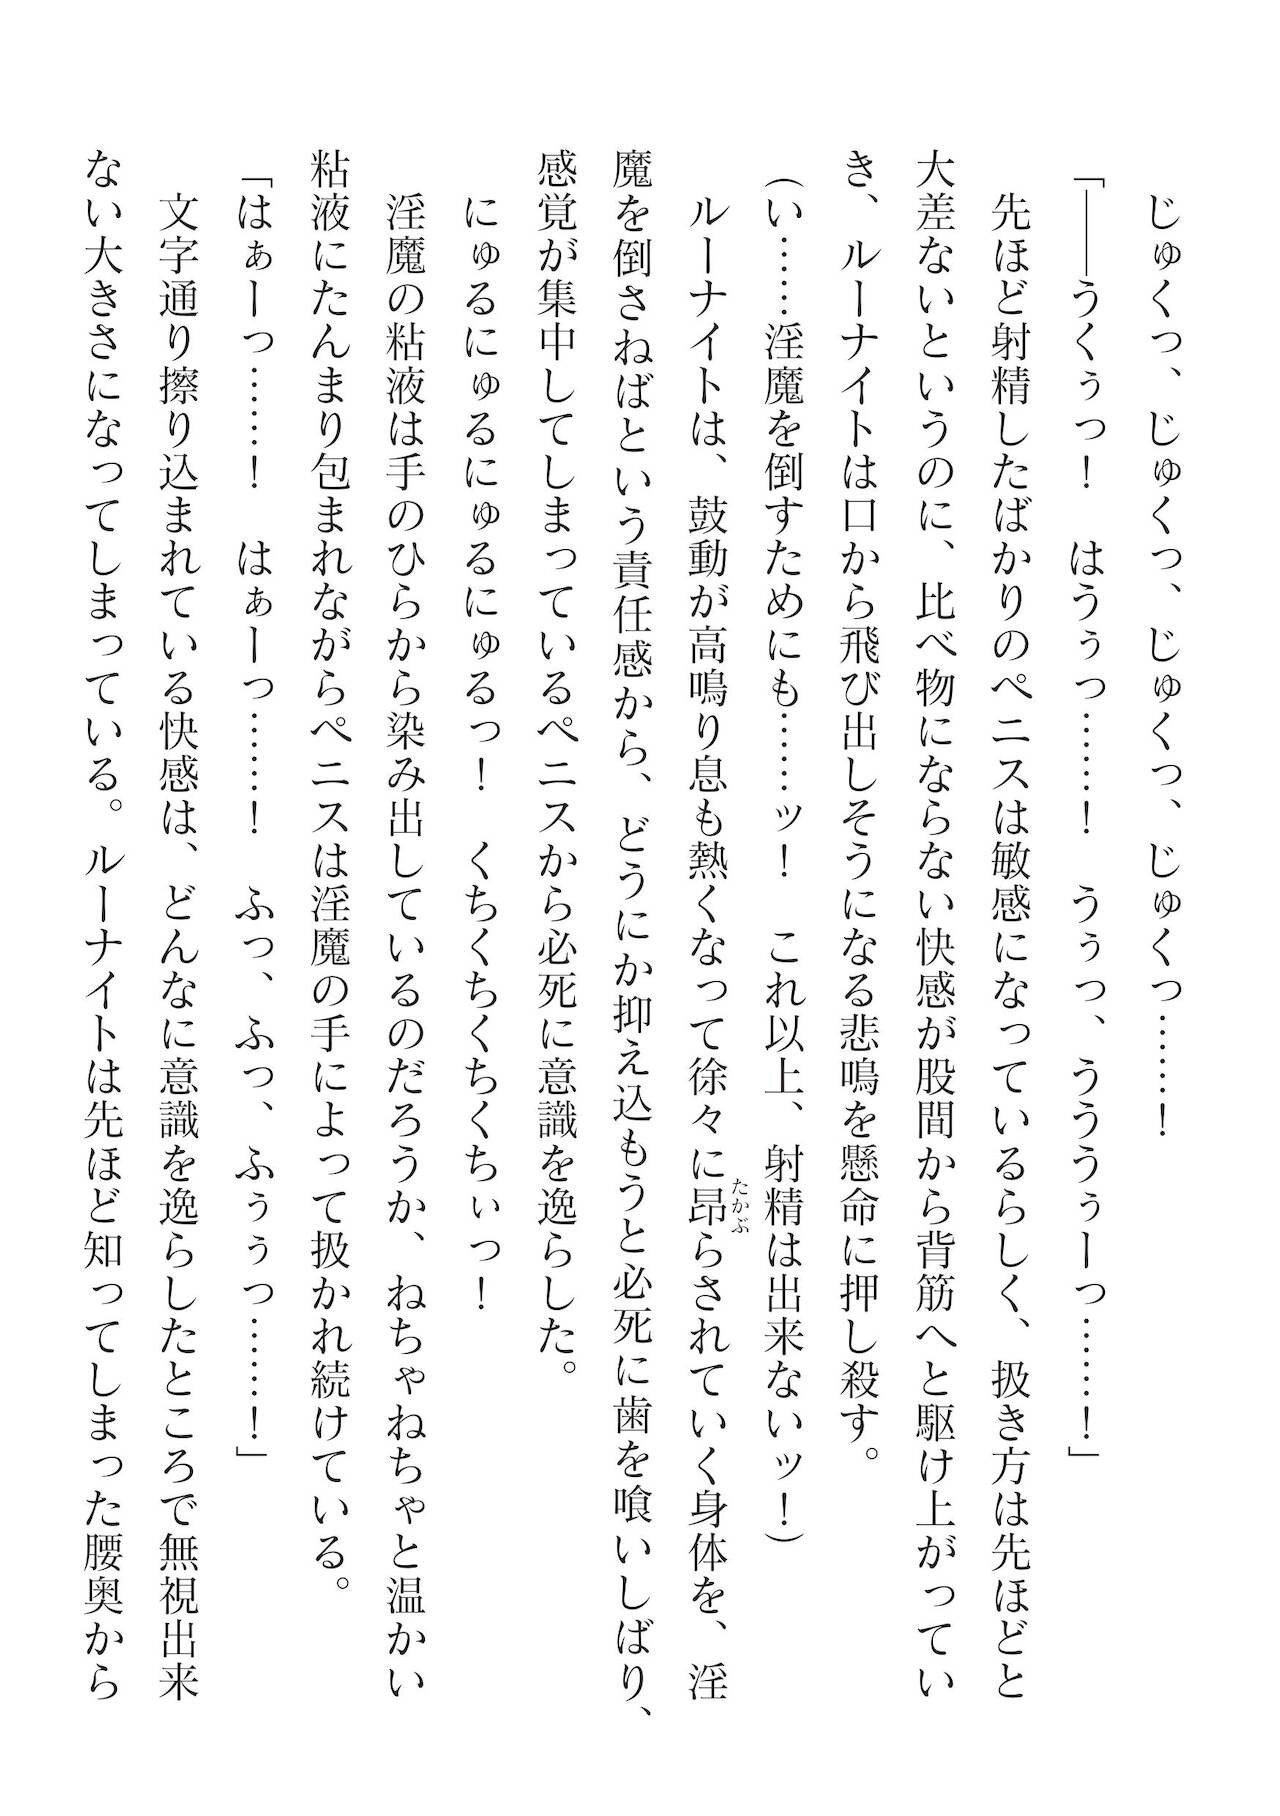 じゅくっ、じゅくっ、じゅくっ、じゅくっ……！
「――うくぅっ！　はうぅっ……！　うぅっ、うううぅーっ……！」
先ほど射精したばかりのペニスは敏感になっているらしく、扱き方は先ほどと
大差ないというのに、比べ物にならない快感が股間から背筋へと駆け上がってい
き、ルーナイトは口から飛び出しそうになる悲鳴を懸命に押し殺す。
（い……淫魔を倒すためにも……ッ！　これ以上、射精は出来ないッ！）
ルーナイトは、鼓動が高鳴り息も熱くなって徐々に昂らされていく身体を、淫
たかぶ
魔を倒さねばという責任感から、どうにか抑え込もうと必死に歯を喰いしばり、
感覚が集中してしまっているペニスから必死に意識を逸らした。
にゅるにゅるにゅるにゅるっ！　くちくちくちくちぃっ！
淫魔の粘液は手のひらから染み出しているのだろうか、ねちゃねちゃと温かい
粘液にたんまり包まれながらペニスは淫魔の手によって扱かれ続けている。
「はぁーっ……！　はぁーっ……！　ふっ、ふっ、ふぅぅっ……！」
文字通り擦り込まれている快感は、どんなに意識を逸らしたところで無視出来
ない大きさになってしまっている。ルーナイトは先ほど知ってしまった腰奥から